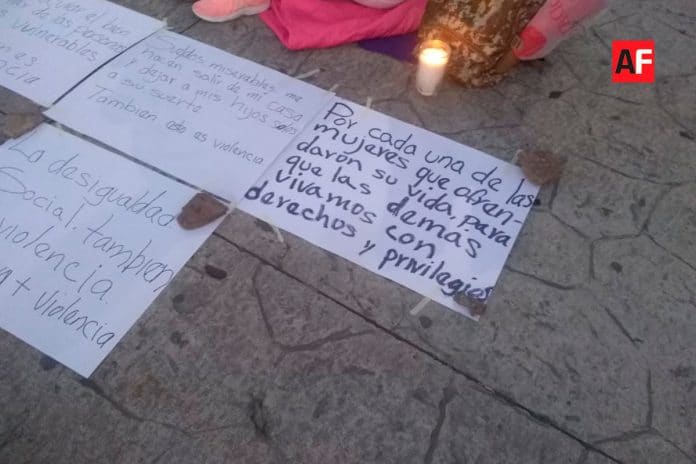 de las personas
vulnerables
Sueldos miserables me
hacen salir de mi casa
y dejar a mis hijos solos
a su suerte
También esto es violencia
Por cada una de las
mujeres que ofren-
darón su vida, para
que las demás
vivamos con
derechos y privilegios
La desigualdad
Social, también
violencia
+ violencia
AF